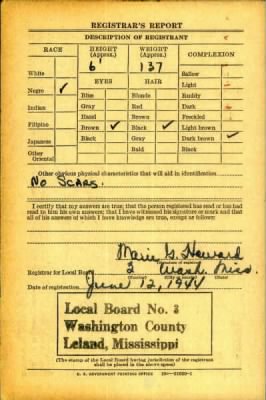 REGISTRAR'S REPORT
DESCRIPTION OF REGISTRANT
RACE HEIGHT (Approx.) WEIGHT (Approx.) COMPLEXION
6' 137
White Sallow
EYES HAIR Light
Negro ✓ Blue Blonde Ruddy
Indian Gray Red Dark
Hazel Brown Freckled
Filipino Brown ✓ Black ✓ Light brown
Japanese Black Gray Dark brown ✓
Other Oriental Bald Black
Other obvious physical characteristics that will aid in identification
No Scars.
I certify that my answers are true; that the person registered has read or has had
read to him his own answers; that I have witnessed his signature or mark and that
all of his answers of which I have knowledge are true, except as follows:
Marie G. Howard
(Signature of registrar)
Registrar for Local Board 3 Wash. Miss.
(Number) (City or county) (State)
Date of registration June 12, 1944
Local Board No. 3
Washington County
Leland, Mississippi
(The stamp of the Local Board having jurisdiction of the registrant
shall be placed in the above space.)
U. S. GOVERNMENT PRINTING OFFICE